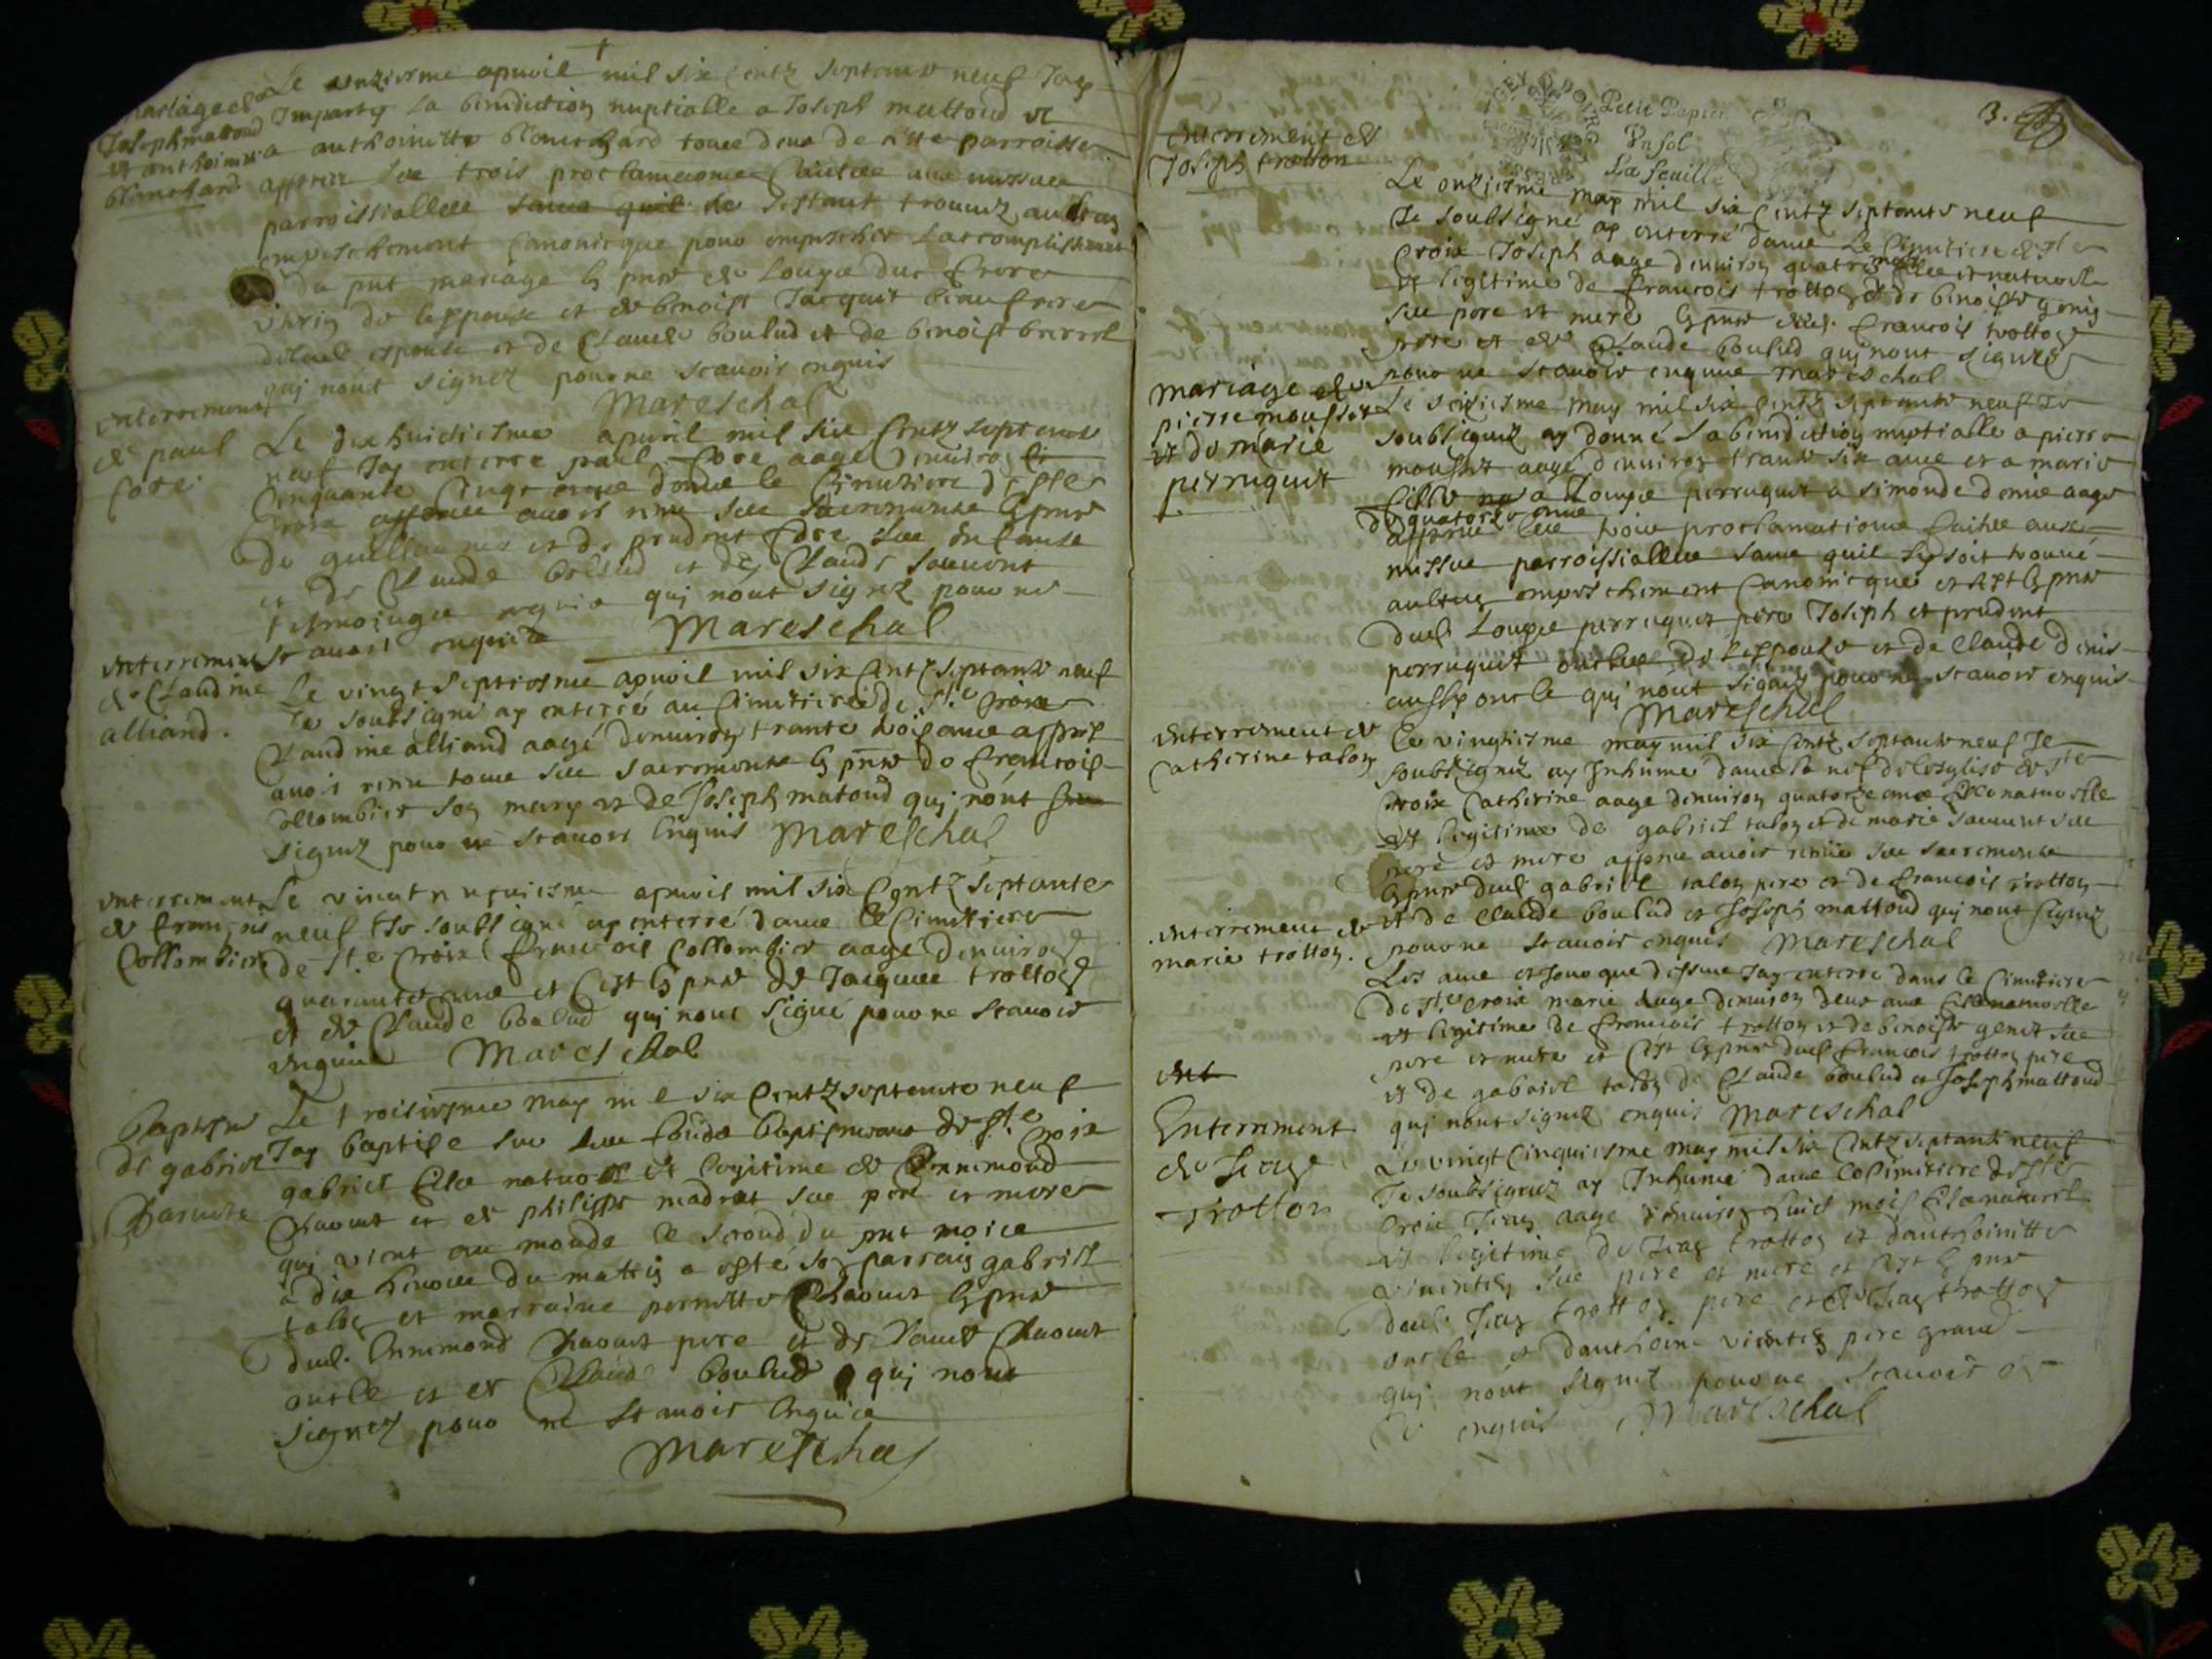 mariage de
Joseph mattoud
et anthoinette
blanchard
Le unziesme apuril mil six centz septante neuf Jay
Imparty la benediction nuptialle a Joseph mattoud et
a anthoinette blanchard tous deux de ceste parroisse
appres les trois proclamaons faictes aux messes
parroissialles sans quil ne sestant trouué aulcun
empeschement canonicque pour empescher laccomplissement
du pnt mariage
de lespouse et de benoist Jacquit beaufrere
espoux et de Claude boulud et de benoist
quj nont signez pour ne scauoir enquis
Mareschal
enterrement
de paul
fore
Le dix huictiesme apuril mil six centz septante
neuf Jay enterré paul fore aagé denuiron
cinquante cinqt ans dans le Cimetiere de ste
Croix appres auoir receu ses sacrementz
de et de prudent fore ses enfants
et de Claude boulud et de Claude sauuent
tesmoingz requis quj nont signez pour ne
scauoir enquis
Mareschal
enterrement
de Claudine
alliand.
Le vingt septiesme apuril mil six centz septante neuf
Je soubsigné ay enterré au Cimetiere de ste Croix
Claudine alliand aagé denuiron trante trois ans appres
auoir receu tous ses sacrementz de francois
collombier son mary et de Joseph matoud quj nont
signez pour ne scauoir enquis Mareschal
enterrement
de francois
Collombier
Le vingt neufuiesme apuril mil six centz septante
neuf Je soubsigné ay enterré dans le Cimetiere
de ste Croix francois Collombier aagé denuiron
quarante ans et cest de Jacques trotton
et de Claude boulud quj nont signé pour ne scauoir
enquis Mareschal
baptesme
de gabriel
Charuet
Le troisiesme may mil six centz septante neuf
Jay baptisé sur les fondz baptismaux de ste Croix
gabriel filz naturel et legitime de Ennemond
Chaouet et de philippe madrat ses pere et mere
quj vient au monde le second du pnt mois
a dix heures du matin a esté son parrain gabriel
talon et marraine pernette Chaouet
dud. Ennemond Chaouet pere et de Chaouet
oncle et de Claude boulud quj nont
signez pour ne scauoir enquis
Mareschal
Petit Papier
Vn sol
La feuille
3.
enterrement de
Joseph trotton
Le onziesme may mil six centz septante neuf
Je soubsigné ay enterré dans le Cimetiere de ste
Croix Joseph aagé denuiron quatre mois filz naturel
et legitime de francois trotton et de benoiste genis
ses pere et mere dud. francois trotton
pere et de Claude boulud quj nont signez
pour ne scauoir enquis Mareschal
mariage de
pierre mousset
et de marie
perruquet
Le seiziesme may mil six centz septante neuf Je
soubsignez ay donné la benediction nuptialle a pierre
mousset aagé denuiron trante six ans et a marie
fille a Loupie perruquet a simonde denis aagé
de quatorze ans
appres les trois proclamations faictes aux
messes parroissialles sans quil se soit trouué
aultung empeschement canonicque et cest
dud. Loupie perruquet pere Joseph et prudent
perruquet oncles de lespouse et de Claude denis
aussy oncle quj nont signez pour ne scauoir enquis
Mareschal
enterrement de
Catherine talon
Le vingtiesme may mil six centz septante neuf Je
soubsignez ay Inhumé dans la nef de lesglise de ste
Croix Catherine aagé denuiron quatorze ans fille naturelle
et legitime de gabriel talon et de marie sauuent ses
pere et mere appres auoir receu ses sacrementz
dud. gabriel talon pere et de francois trotton
et de Claude boulud et Joseph mattoud quj nont signez
pour ne scauoir enquis Mareschal
enterrement de
marie trotton.
Les ans et Jour que dessus Jay enterré dans le Cimetiere
de ste Croix marie aagé denuiron deux ans fille naturelle
et legitime de francois trotton et de benoiste genet ses
pere et mere et cest dud. francois trotton pere
et de gabriel talon de Claude boulud et Joseph mattoud
quj nont signez enquis Mareschal
ent
Enterrement
de Jean
Trotton
Le vingt cinquiesme may mil six centz septante neuf
Je soubsignez ay Inhumé dans le Cimetiere de ste
Croix Jean aagé denuiron huict mois filz naturel
et legitime de Jean trotton et danthoinette
vincten ses pere et mere et cest
dud. Jean trotton pere et de Jean trotton
oncle et danthoine vincten pere grand
quj nont signez pour ne scauoir
enquis Mareschal